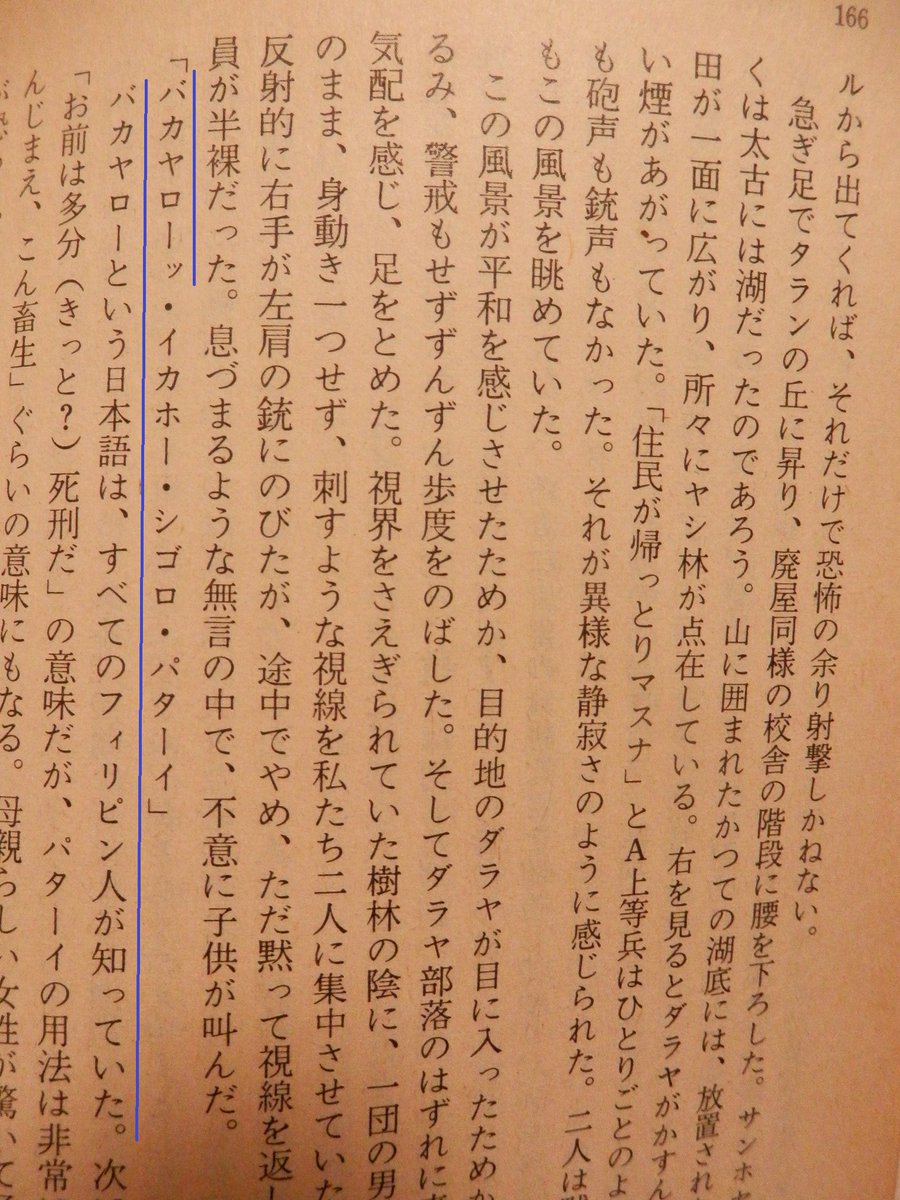 166
ルから出てくれば、それだけで恐怖の余り射撃しかねない。
急ぎ足でタランの丘に昇り、廃屋同様の校舎の階段に腰を下ろした。サンホセ
くは太古には湖だったのであろう。山に囲まれたかつての湖底には、放置され
田が一面に広がり、所々にヤシ林が点在している。右を見るとダラヤがかすん
い煙があがっていた。「住民が帰っとりマスナ」とA上等兵はひとりごとのよ
も砲声も銃声もなかった。それが異様な静寂さのように感じられた。二人は
もこの風景を眺めていた。
この風景が平和を感じさせたためか、目的地のダラヤが目に入ったためか
るみ、警戒もせずずんずん歩度をのばした。そしてダラヤ部落のはずれに
気配を感じ、足をとめた。視界をさえぎられていた樹林の陰に、一団の男
のまま、身動き一つせず、刺すような視線を私たち二人に集中させていた
反射的に右手が左肩の銃にのびたが、途中でやめ、ただ黙って視線を返し
員が半裸だった。息づまるような無言の中で、不意に子供が叫んだ。
「バカヤローッ・イカホー・シゴロ・パターイ」
バカヤローという日本語は、すべてのフィリピン人が知っていた。次
「お前は多分（きっと？）死刑だ」の意味だが、パターイの用法は非常
んじまえ、こん畜生」ぐらいの意味にもなる。母親らしい女性が驚いて